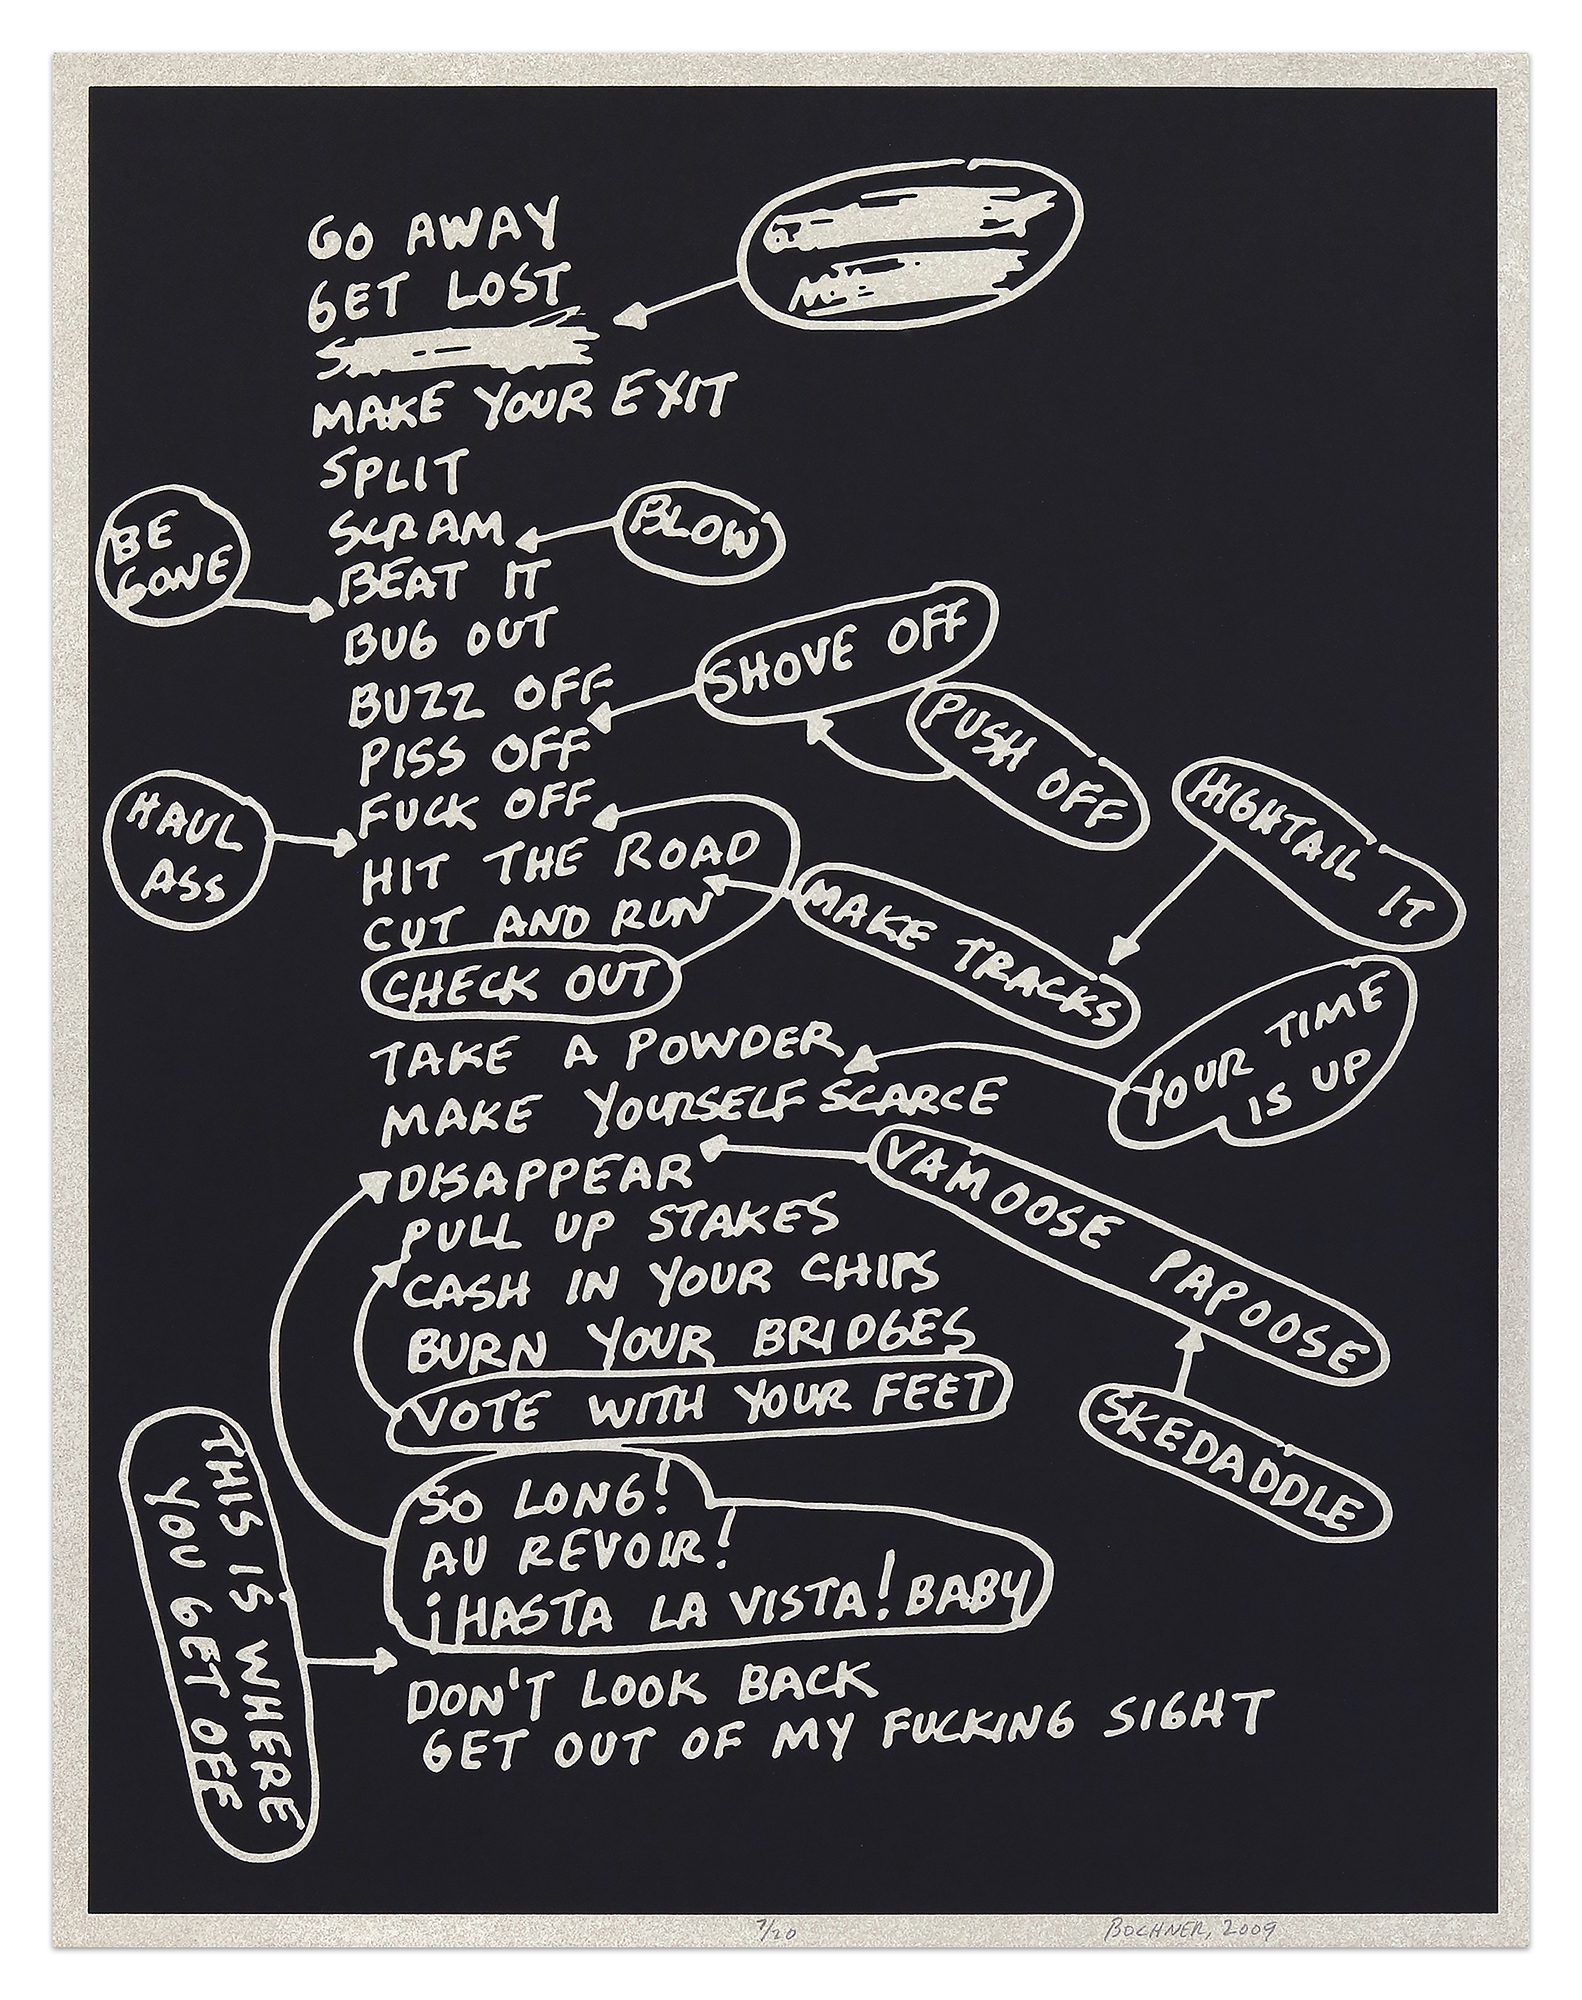 GO AWAY
GET LOST
MAKE YOUR EXIT
SPLIT
SCRAM
BLOW
BE
GONE
BEAT IT
BUG OUT
SHOVE OFF
BUZZ OFF
PUSH OFF
PISS OFF
HAUL
ASS
FUCK OFF
HIGHTAIL IT
HIT THE ROAD
CUT AND RUN
MAKE TRACKS
CHECK OUT
YOUR TIME
IS UP
TAKE A POWDER
MAKE YOURSELF SCARCE
DISAPPEAR
VAMOOSE PAPOOSE
PULL UP STAKES
CASH IN YOUR CHIPS
BURN YOUR BRIDGES
VOTE WITH YOUR FEET
SKEDADDLE
SO LONG!
AU REVOIR!
¡HASTA LA VISTA! BABY
THIS IS WHERE
YOU GET OFF
DON'T LOOK BACK
GET OUT OF MY FUCKING SIGHT
7/20
BOCHNER, 2009